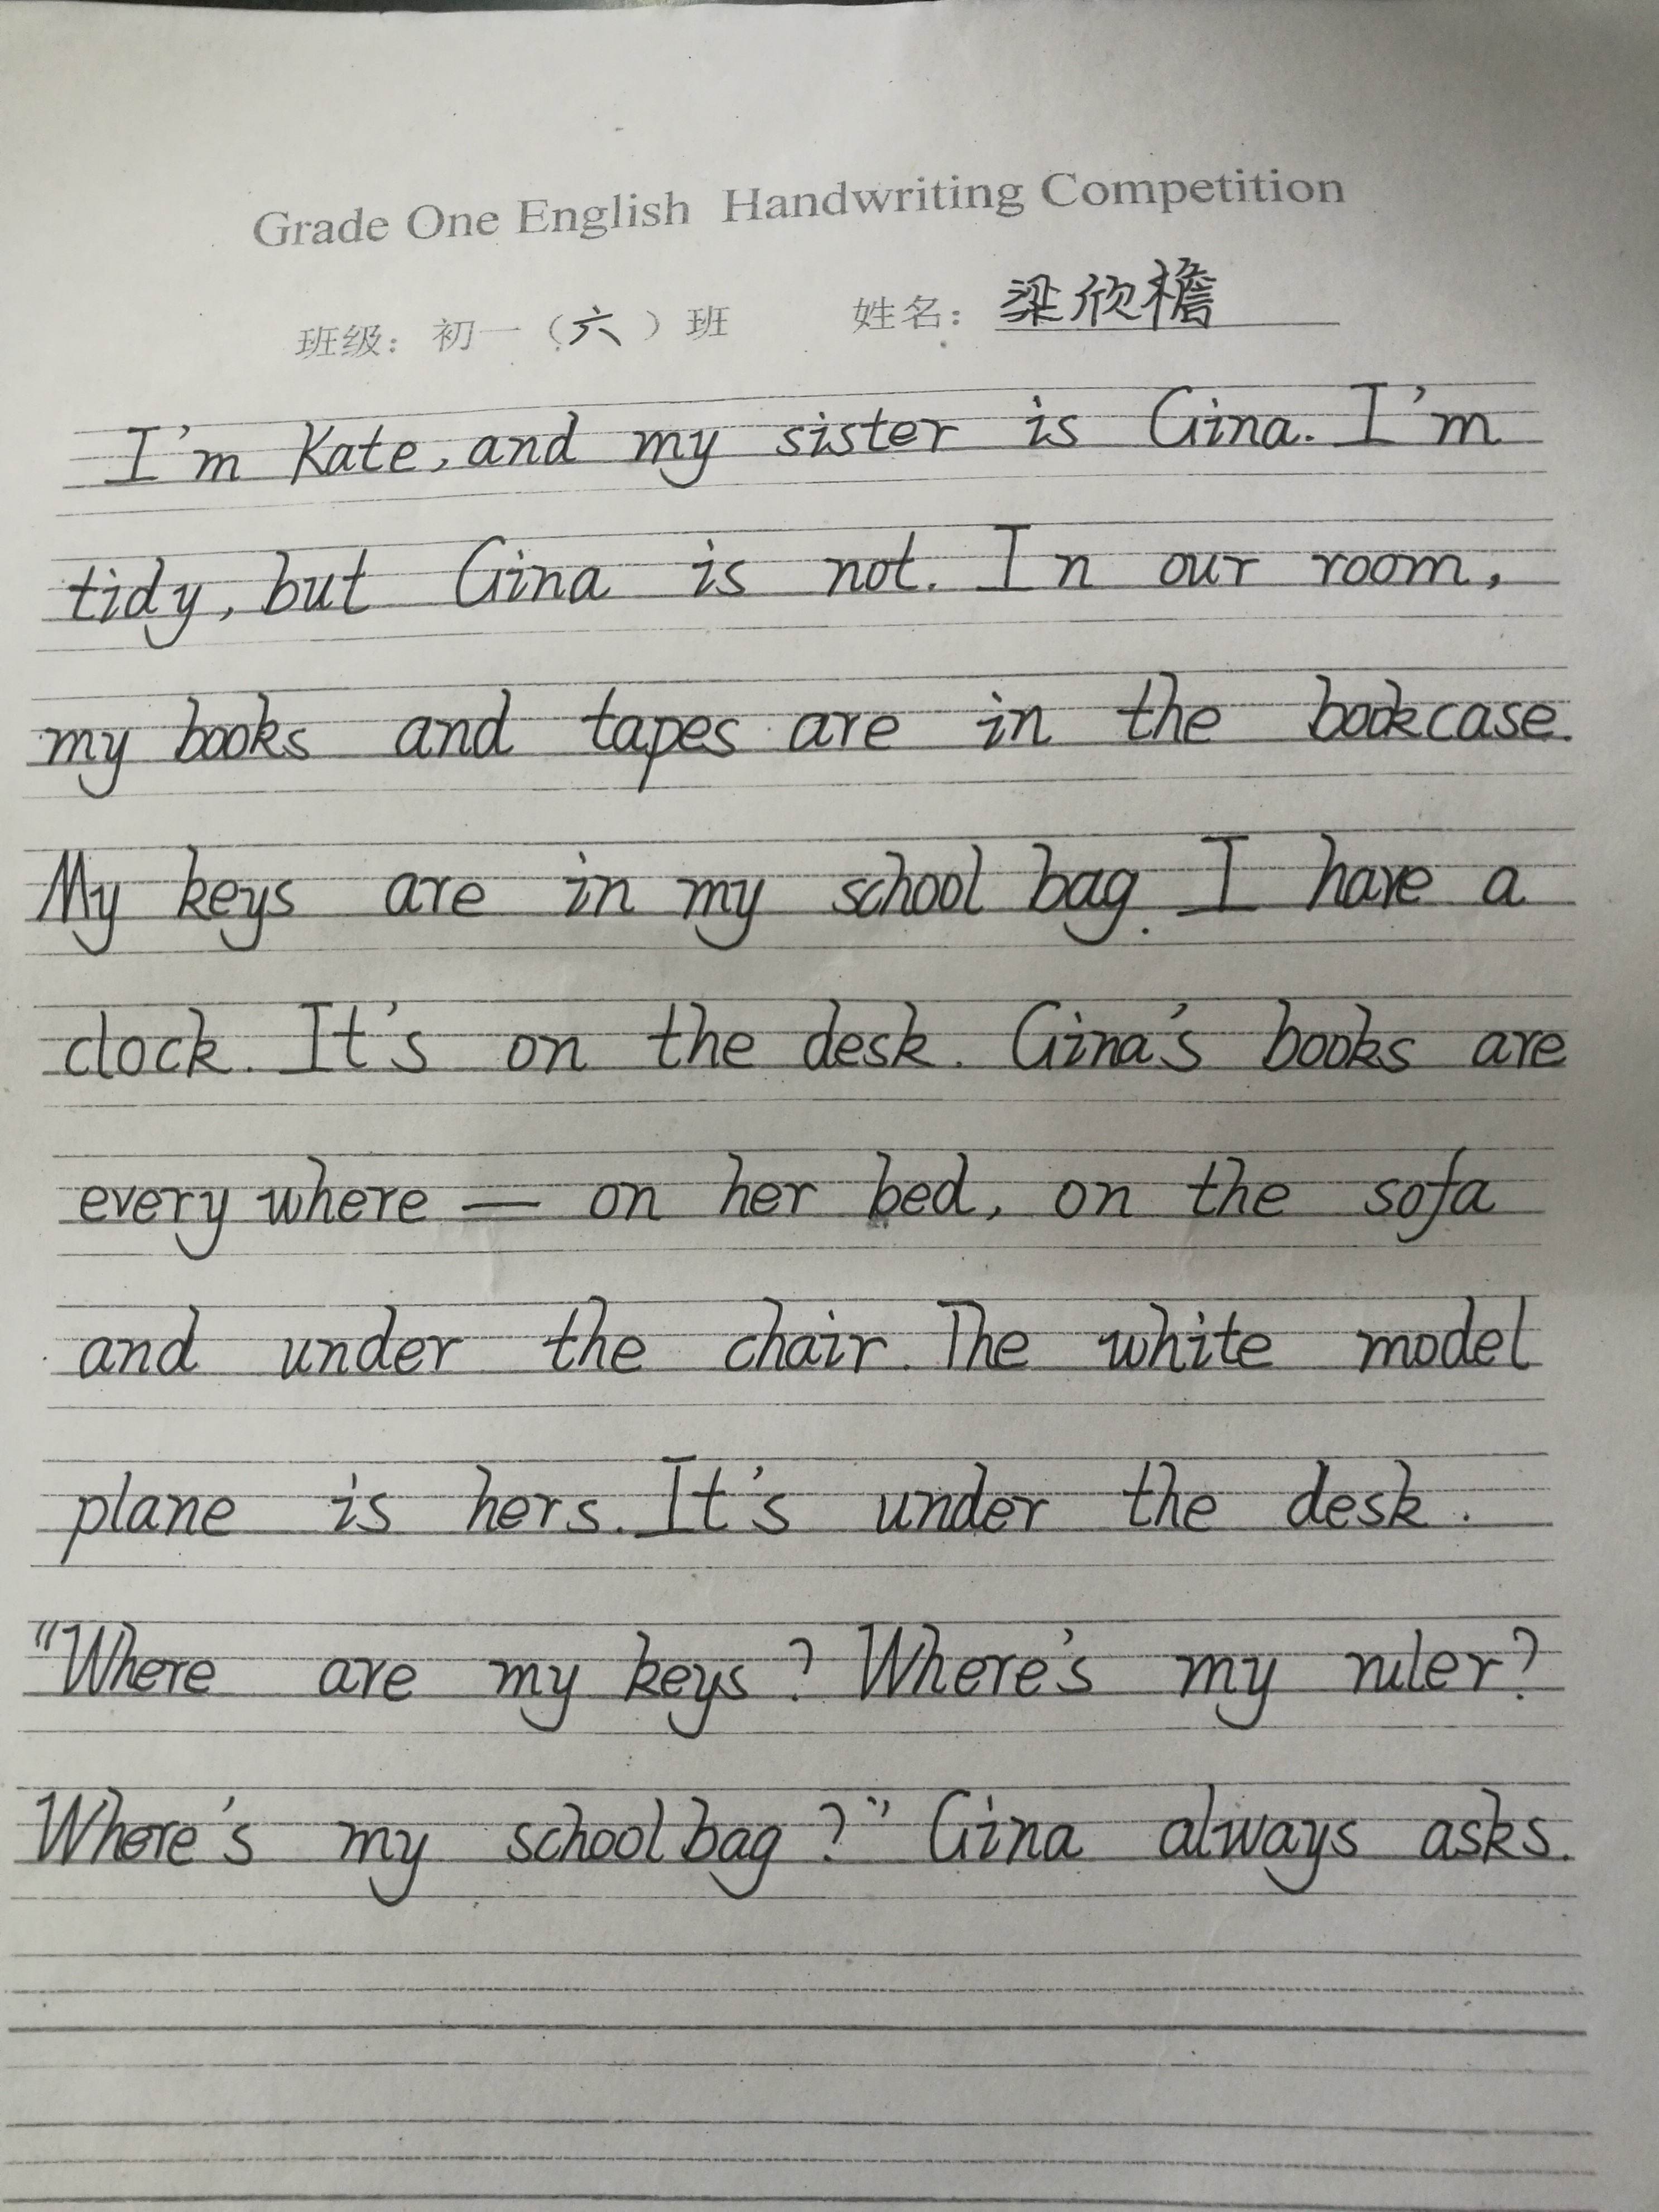 Grade One English Handwriting Competition
班级：初一（六）班 姓名：梁欣檐
I'm Kate, and my sister is Gina. I'm
tidy, but Gina is not. In our room,
my books and tapes are in the bookcase.
My keys are in my school bag. I have a
clock. It's on the desk. Gina's books are
every where — on her bed, on the sofa
and under the chair. The white model
plane is hers. It's under the desk.
"Where are my keys? Where's my ruler?
Where's my school bag?" Gina always asks.